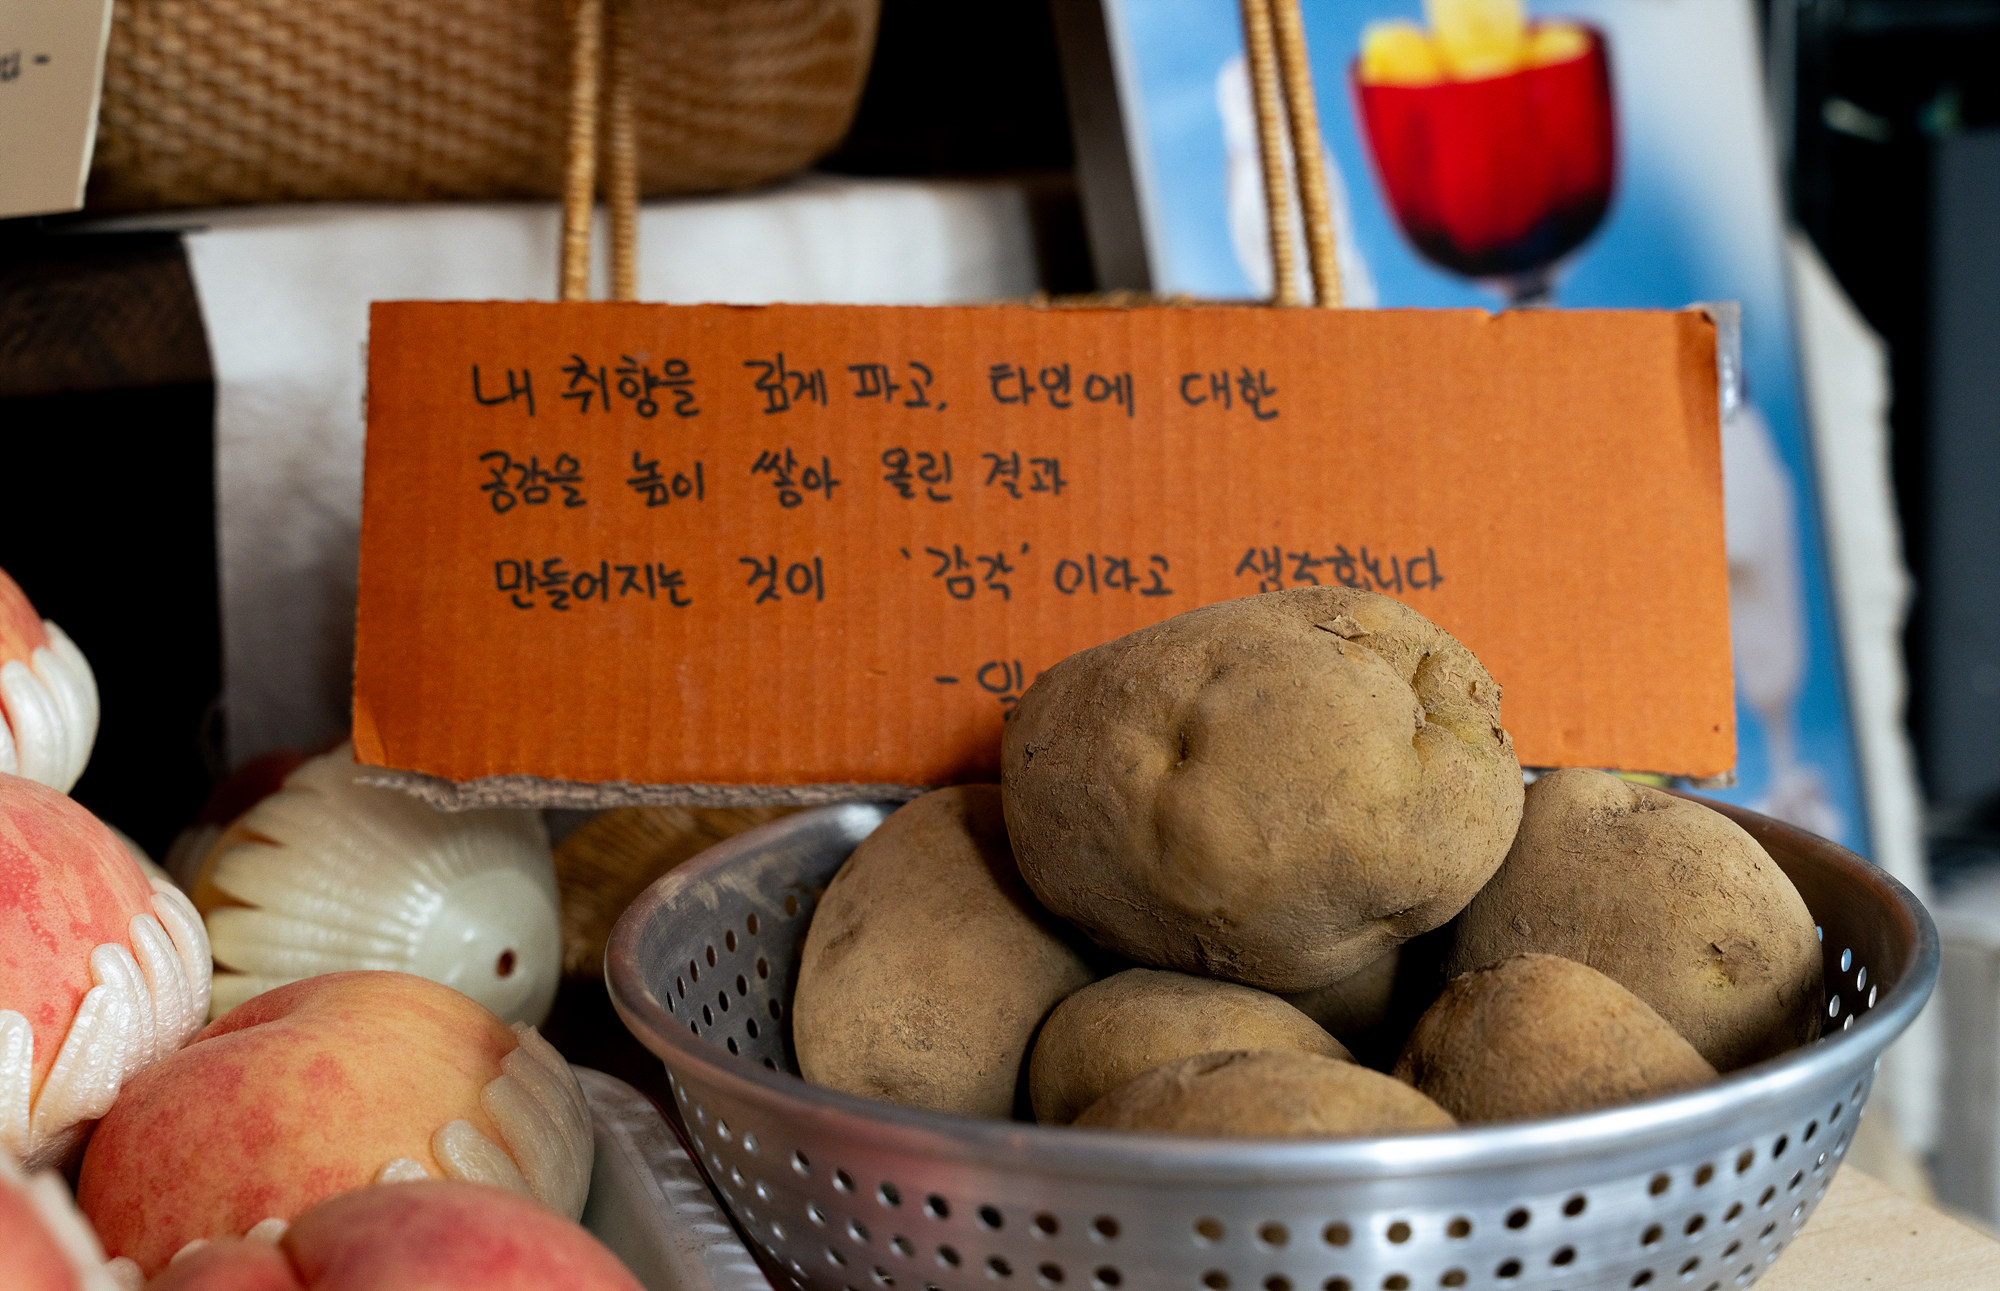 내 취향을 깊게 파고, 타인에 대한
공감을 높이 쌓아 올린 결과
만들어지는 것이 '감각' 이라고 생각합니다